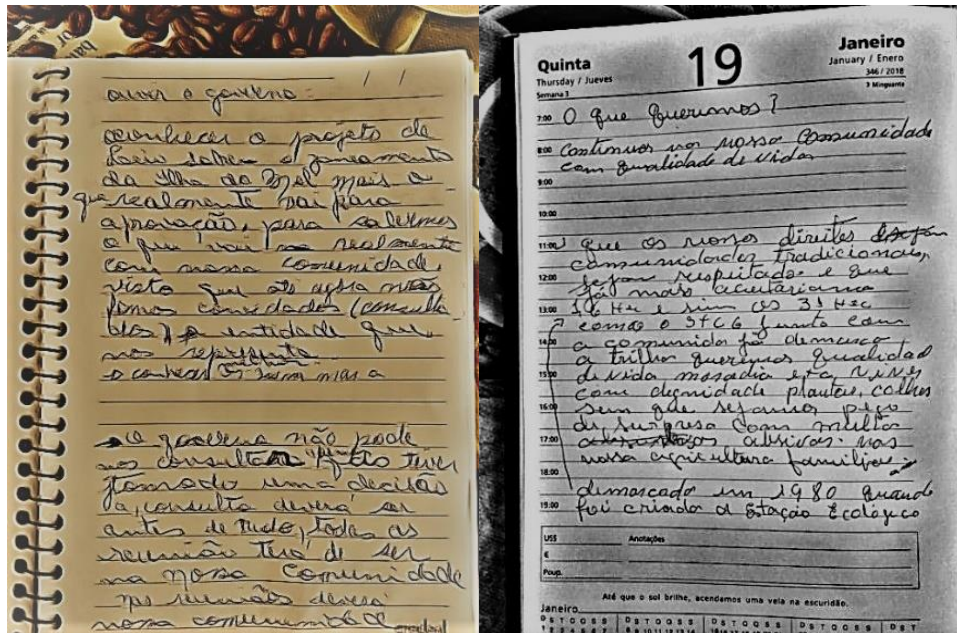 ouvir o governo:
/ /
conhecer o projeto de
Lei sobre o zoneamento
da Ilha do Mel mais o
que realmente vai para
aprovação, para sabermos
o que vai realmente
com nossa comunidade,
visto que até agora não
fomos convidados (consulta
dos) e entidade que
nos representa
mas a
→ O governo não pode
nos consultar tiver
tomado uma decisão
a consulta deverá ser
antes de tudo, todas as
reunião terá de ser
na nossa comunidade
nas reuniões deverá
nossa comunidade
Quinta
Thursday / Jueves
Semana 3
19
Janeiro
January / Enero
346 / 2018
7:00 O que queremos?
8:00 continuar nos nossa comunidade
com qualidade de vida
9:00
10:00
11:00 que os nossos direitos
comunidades tradicionais,
12:00 sejam respeitado e que
já mais
13:00 Hec e sim os 31 Hec
como o junto com
14:00 a comunida já demarco
a trilha queremos qualidad
15:00 de vida moradia viver
com dignidade plantar, colher
16:00 sem que sejamos pego
de surpresa com multa
17:00 abusivas nas
nossa agricultura familiar
18:00
demarcado em 1980 quando
19:00 foi criado a Estação Ecológico
US$ Anotações
€
Poup.
Até que o sol brilhe, acendemos uma vela na escuridão.
Janeiro
D S T Q Q S S D S T Q Q S S D S T Q Q S S D S T Q Q S S D S T